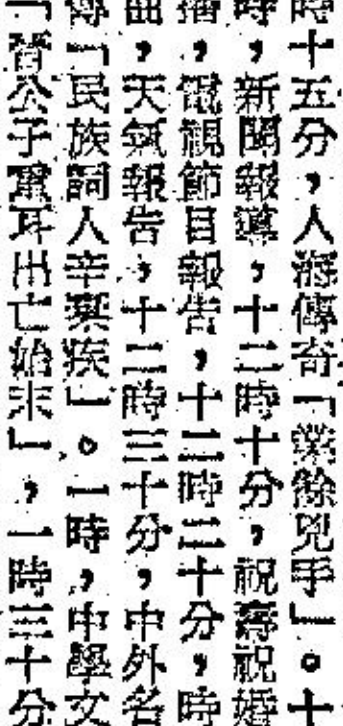 時十五分，人海傳奇「業餘兇手」。十
時，新聞報導，十二時十分，祝壽祝婚
播，電視節目報告，十二時二十分，時
曲，天氣報告，十二時三十分，中外名
傳「民族詞人辛棄疾」。一時，中學文
「晉公子重耳出亡始末」，一時三十分